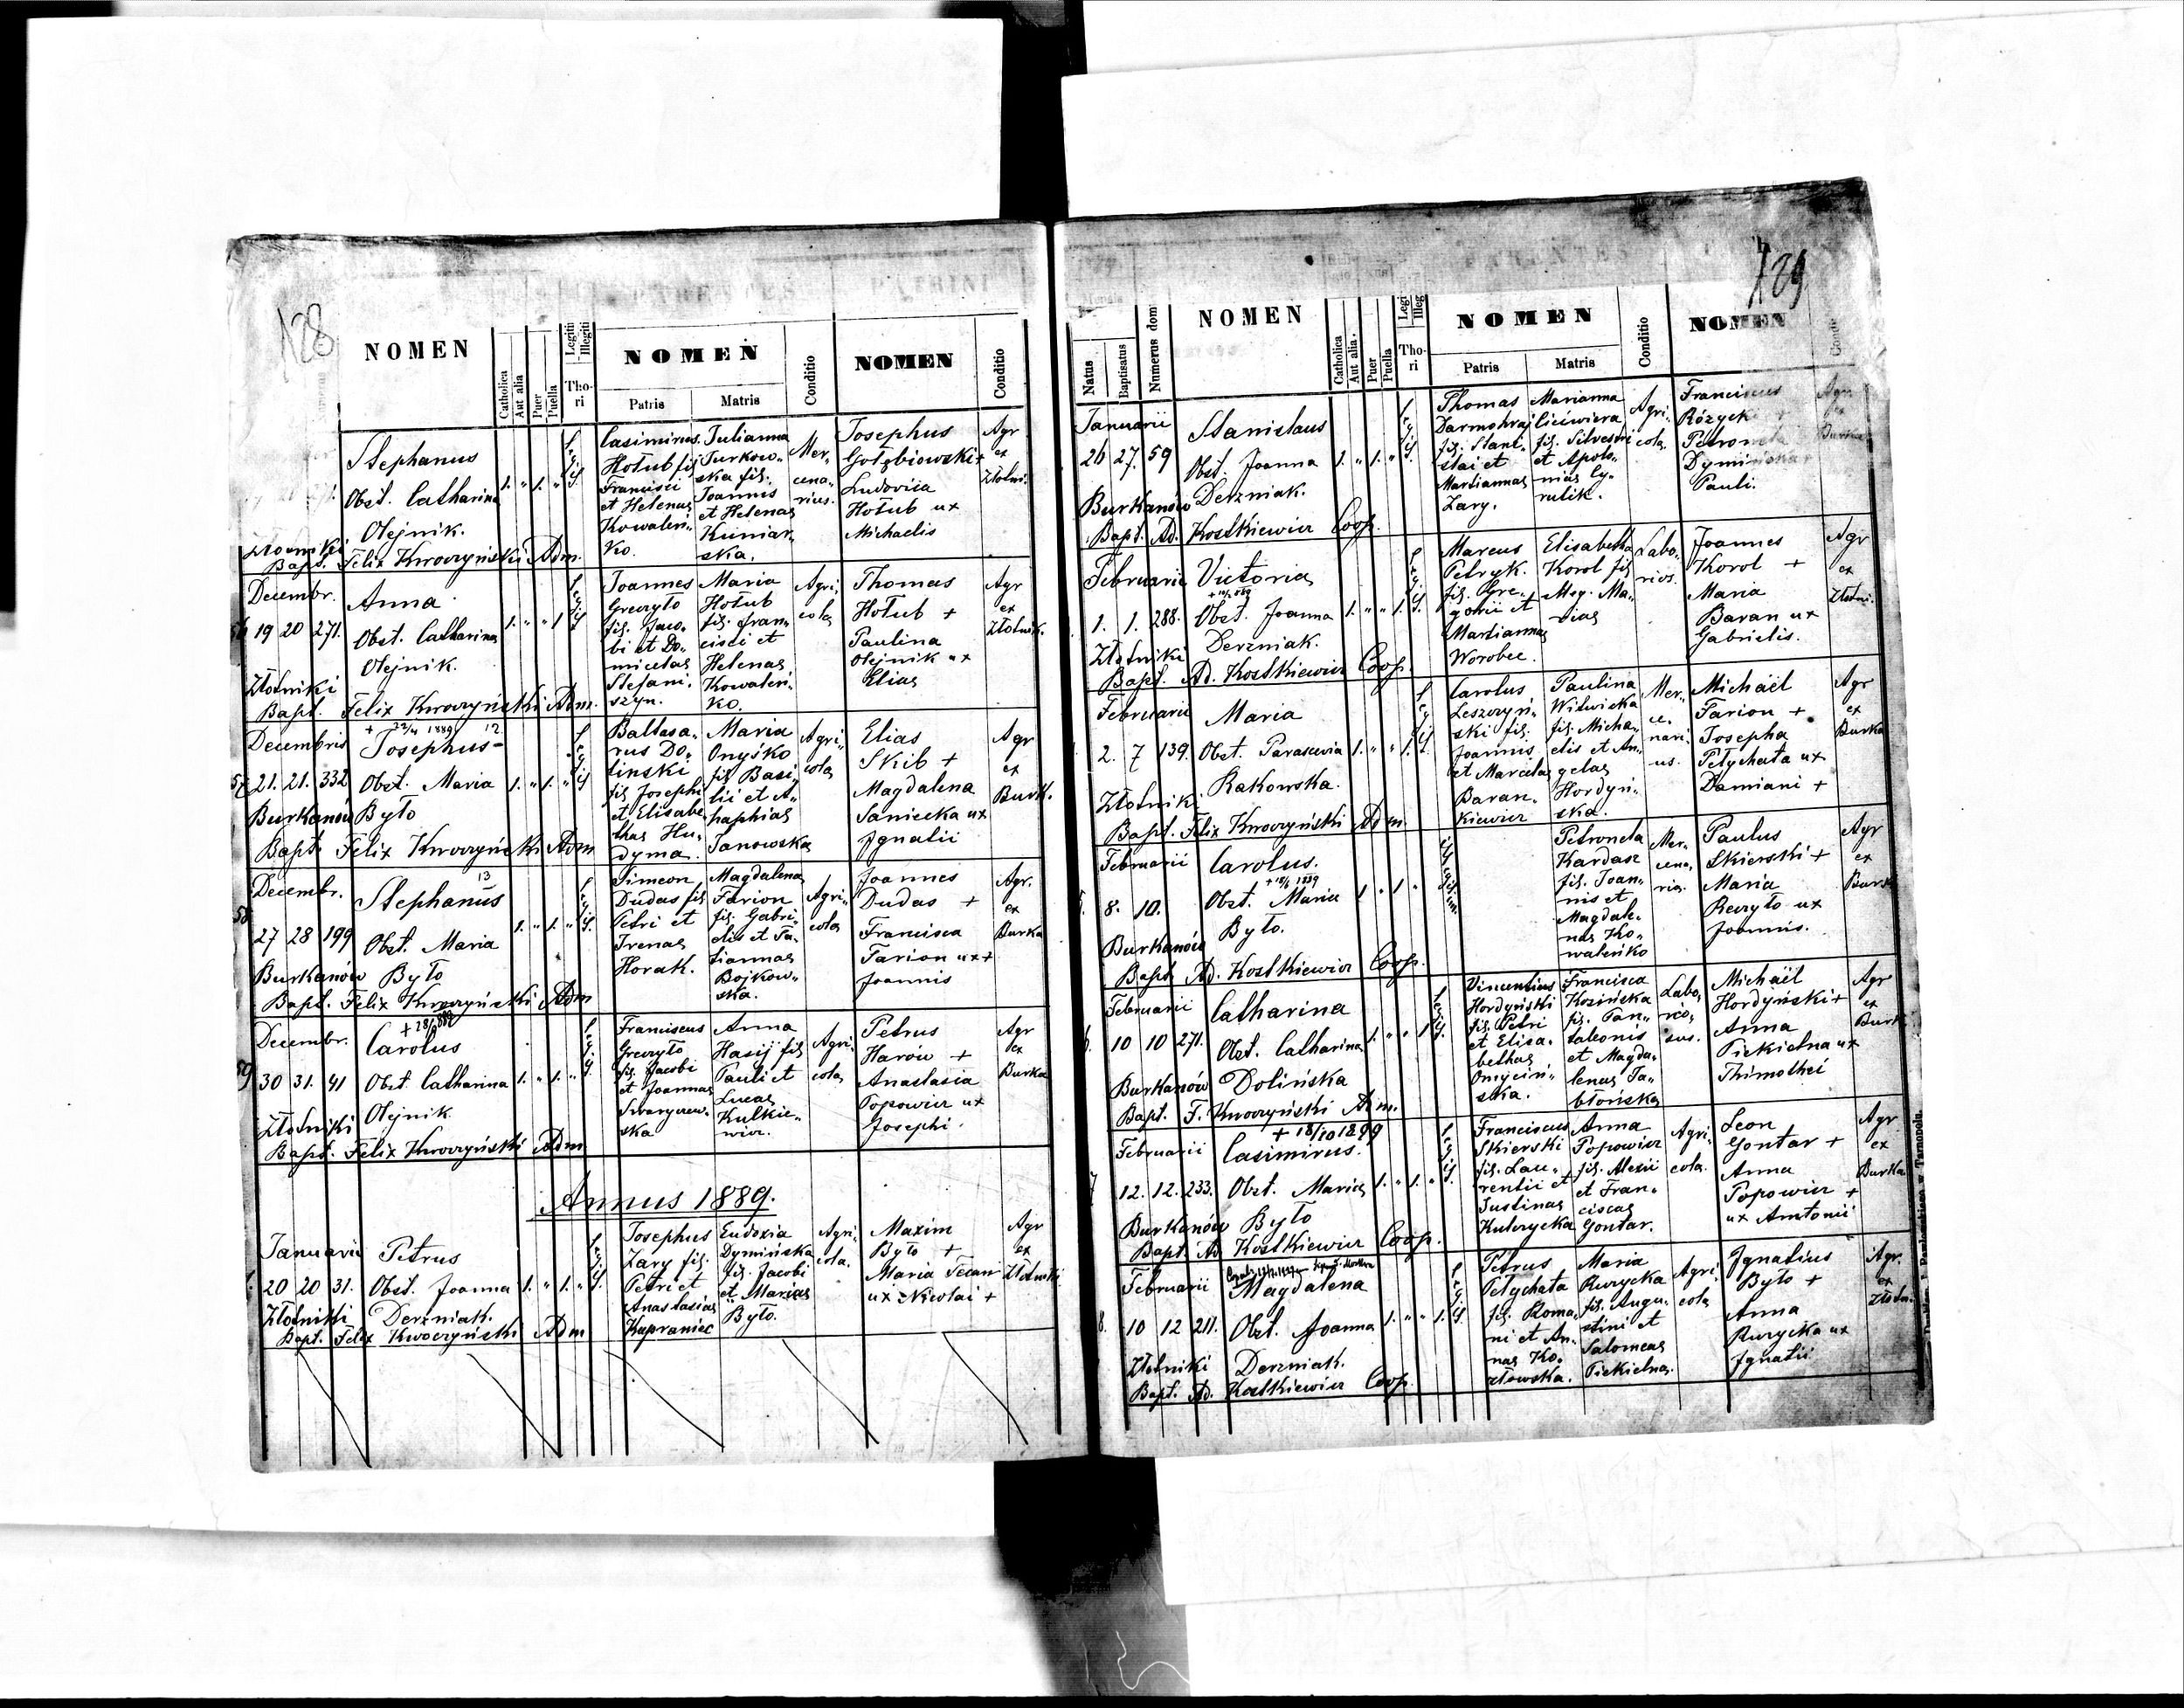 128
PATRINI
NOMEN
Catholica
Aut alia
Puer
Puella
Legiti
Illegiti
Tho-
ri
NOMEN
Patris
Matris
Conditio
NOMEN
Conditio
Stephanus
Obst. Catharina
Olejnik.
Bapt. Felix Kwoczyński Adm.
1. " 1. "
Leg.
Casimirus
Hołub fil
Francisci
et Helenas
Kowaleń-
ko.
Julianna
Turkow-
ska fil.
Joannis
et Helenas
Kuniar-
ska.
Mer-
cena-
rius.
Josephus
Gołębiowski +
Ludovica
Hołub ux
Michaelis
Agr
ex
Złotni.
Decembr.
19 20 271.
Anna
Obst. Catharina
Olejnik.
Złotniki
Bapt. Felix Kwoczyński Adm.
1. " " 1
Joannes
Greczyło
fil. Jaco-
bi et Do-
micelas
Stefani-
szyn.
Maria
Hołub
fil. Fran-
cisci et
Helenas
Kowaleń-
ko.
Agri-
cola
Thomas
Hołub +
Paulina
Olejnik ux
Elias
Agr
ex
Złotnik.
Decembris
57 21. 21. 332
+ 22/4 1889 12
Josephus
Obst. Maria
Burkanów Było
Bapt. Felix Kwoczyński Adm
1. " 1. "
Baltasa-
rus Do-
liński
fil Josephi
et Elisabe-
thas Hu-
dyma.
Maria
Onyśko
fil Basi-
lii et A-
haphias
Janowska
Agri-
cola
Elias
Skib +
Magdalena
Saniecka ux
Ignatii
Agr
ex
Burk.
Decembr.
58
27 28 199
13
Stephanus
Obst. Maria
Burkanów Było
Bapt. Felix Kwoczyński Adm
1. " 1. "
Simeon
Dudas fil
Petri et
Irenas
Horak.
Magdalena
Farion
fil. Gabri-
elis et Ta-
tiannas
Bojkow-
ska.
Agri-
cola
Joannes
Dudas +
Francisca
Farion ux +
Joannis
Agr.
ex
Burka
Decembr.
59 30 31. 41
Carolus
Obst. Catharina
Złotniki Olejnik
Bapt. Felix Kwoczyński Adm
1. " 1. "
Franciscus
Greczyło
fil. Jacobi
et Joannas
Swaryczew-
ska
Anna
Hasij fil
Pauli et
Lucas
Kulkie-
wicz.
Agri-
cola
Petrus
Harów +
Anastasia
Popowicz ux
Josephi.
Agr
ex
Burka
Annus 1889.
Januarii
20 20 31.
Petrus
Obst. Joanna
Złotniki Derzniak.
Bapt. Felix Kwoczyński Adm
1. " 1. "
Josephus
Zary fil.
Petri et
Anastasias
Kapraniec
Eudoxia
Dymińska
fil. Jacobi
et Marias
Było.
Agri-
cola.
Maxim
Było +
Maria Fecan
ux Nicolai +
Agr
ex
Złotniki
129
Natus
Baptisatus
Numerus dom
NOMEN
Catholica
Aut alia.
Puer
Puella
Legi
Illeg
Tho-
ri
NOMEN
Patris
Matris
Conditio
NOMEN
Januarii
26 27. 59
Stanislaus
Obst. Joanna
Burkanów Derzniak.
Bapt. Ad. Kostkiewicz Coop.
1. " 1. "
Thomas
Darmohraj
fil. Stani-
slai et
Mariannas
Zary.
Marianna
fil. Silvestri
et Apolo-
nias Cy-
rulik.
Agri-
cola.
Franciscus
Różycki
Petronela
Dymińska
Pauli.
Februarii
1. 1. 288.
Victoria
Obst. Joanna
Złotniki Derzniak.
Bapt. Ad. Kostkiewicz Coop.
1. " " 1.
Marcus
Petryk.
fil. Gre-
gorii et
Mariannas
Worobec.
Elisabetha
Korol fil
Mag. Ma-
rias
Labo-
rios.
Joannes
Korol +
Maria
Baran ux
Gabrielis.
Agr
ex
Złotni.
Februarii
2. 7 139.
Maria
Obst. Parascevia
Rakowska.
Złotniki
Bapt. Felix Kwoczyński Adm
1. " " 1.
Carolus
Leszczyń-
ski fil.
Joannis
et Marcelas
Baran-
kiewicz
Paulina
Witwicka
fil. Micha-
elis et An-
gelas
Hordyń-
ska.
Mer-
ce-
nari-
us.
Michaël
Farion +
Josepha
Petychata ux
Damiani +
Agr
ex
Burka
Februarii
8. 10.
Carolus.
Obst. Maria
Burkanów Było.
Bapt. Ad. Kostkiewicz Coop.
1 " 1 "
Petronela
Kardasz
fil. Joan-
nis et
Magdale-
nas Ko-
waleńko
Mer-
cena-
ria.
Paulus
Skierski +
Maria
Reczyło ux
Joannis.
Agr
ex
Burk
Februarii
10 10 271.
Catharina
Obst. Catharina
Burkanów Dolińska
Bapt. F. Kwoczyński Adm.
1. " " 1
Vincentius
Hordyński
fil. Petri
et Elisa-
bethas
Onyciń-
ska.
Francisca
Kozińska
fil. Pan-
taleonis
et Magda-
lenas Ja-
błońska
Labo-
rio-
sus.
Michaël
Hordyński +
Anna
Piekielna ux
Thimothei
Agr
ex
Burk
Februarii
12. 12. 233.
+ 18/10 1899
Casimirus.
Obst. Maria
Burkanów Było
Bapt. Ad. Kostkiewicz Coop.
1. " 1. "
Franciscus
Skierski
fil. Lau-
rentii et
Justinas
Kulczycka
Anna
Popowicz
fil. Alexii
et Fran-
ciscas
Gontar.
Agri-
cola.
Leon
Gontar +
Anna
Popowicz +
ux Antonii
Agr
ex
Burka
Februarii
10 12 211.
Magdalena
Obst. Joanna
Złotniki Derzniak.
Bapt. Ad. Kostkiewicz Coop.
1. " " 1.
Petrus
Petychata
fil. Roma-
ni et An-
nas Ko-
złowska.
Maria
Rurycka
fil. Augu-
stini et
Salomeas
Piekielna.
Agri-
cola
Ignatius
Było +
Anna
Rurycka ux
Ignatii
Agr.
ex
Złotn.